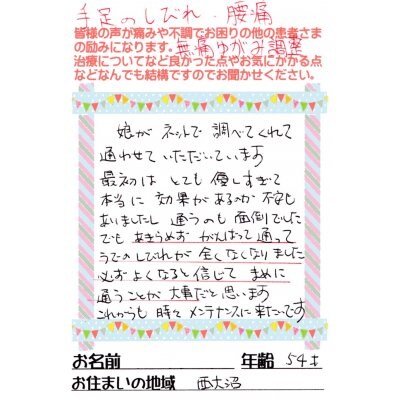 手足のしびれ・腰痛
皆様の声が痛みや不調でお困りの他の患者さま
の励みになります。無痛ゆがみ調整
治療についてなど良かった点やお気にかかる点
などなんでも結構ですのでお聞かせください。
娘が ネットで 調べてくれて
通わせていただいています
最初は とても 優しすぎて
本当に 効果があるのか 不安も
ありましたし 通うのも 面倒でした
でも あきらめず がんばって 通って
うでのしびれが 全くなくなりました
必ず よくなると 信じて まめに
通うことが 大事だと 思います
これからも 時々 メンテナンスに 来たいです
お名前 年齢 54才
お住まいの地域 西大沼